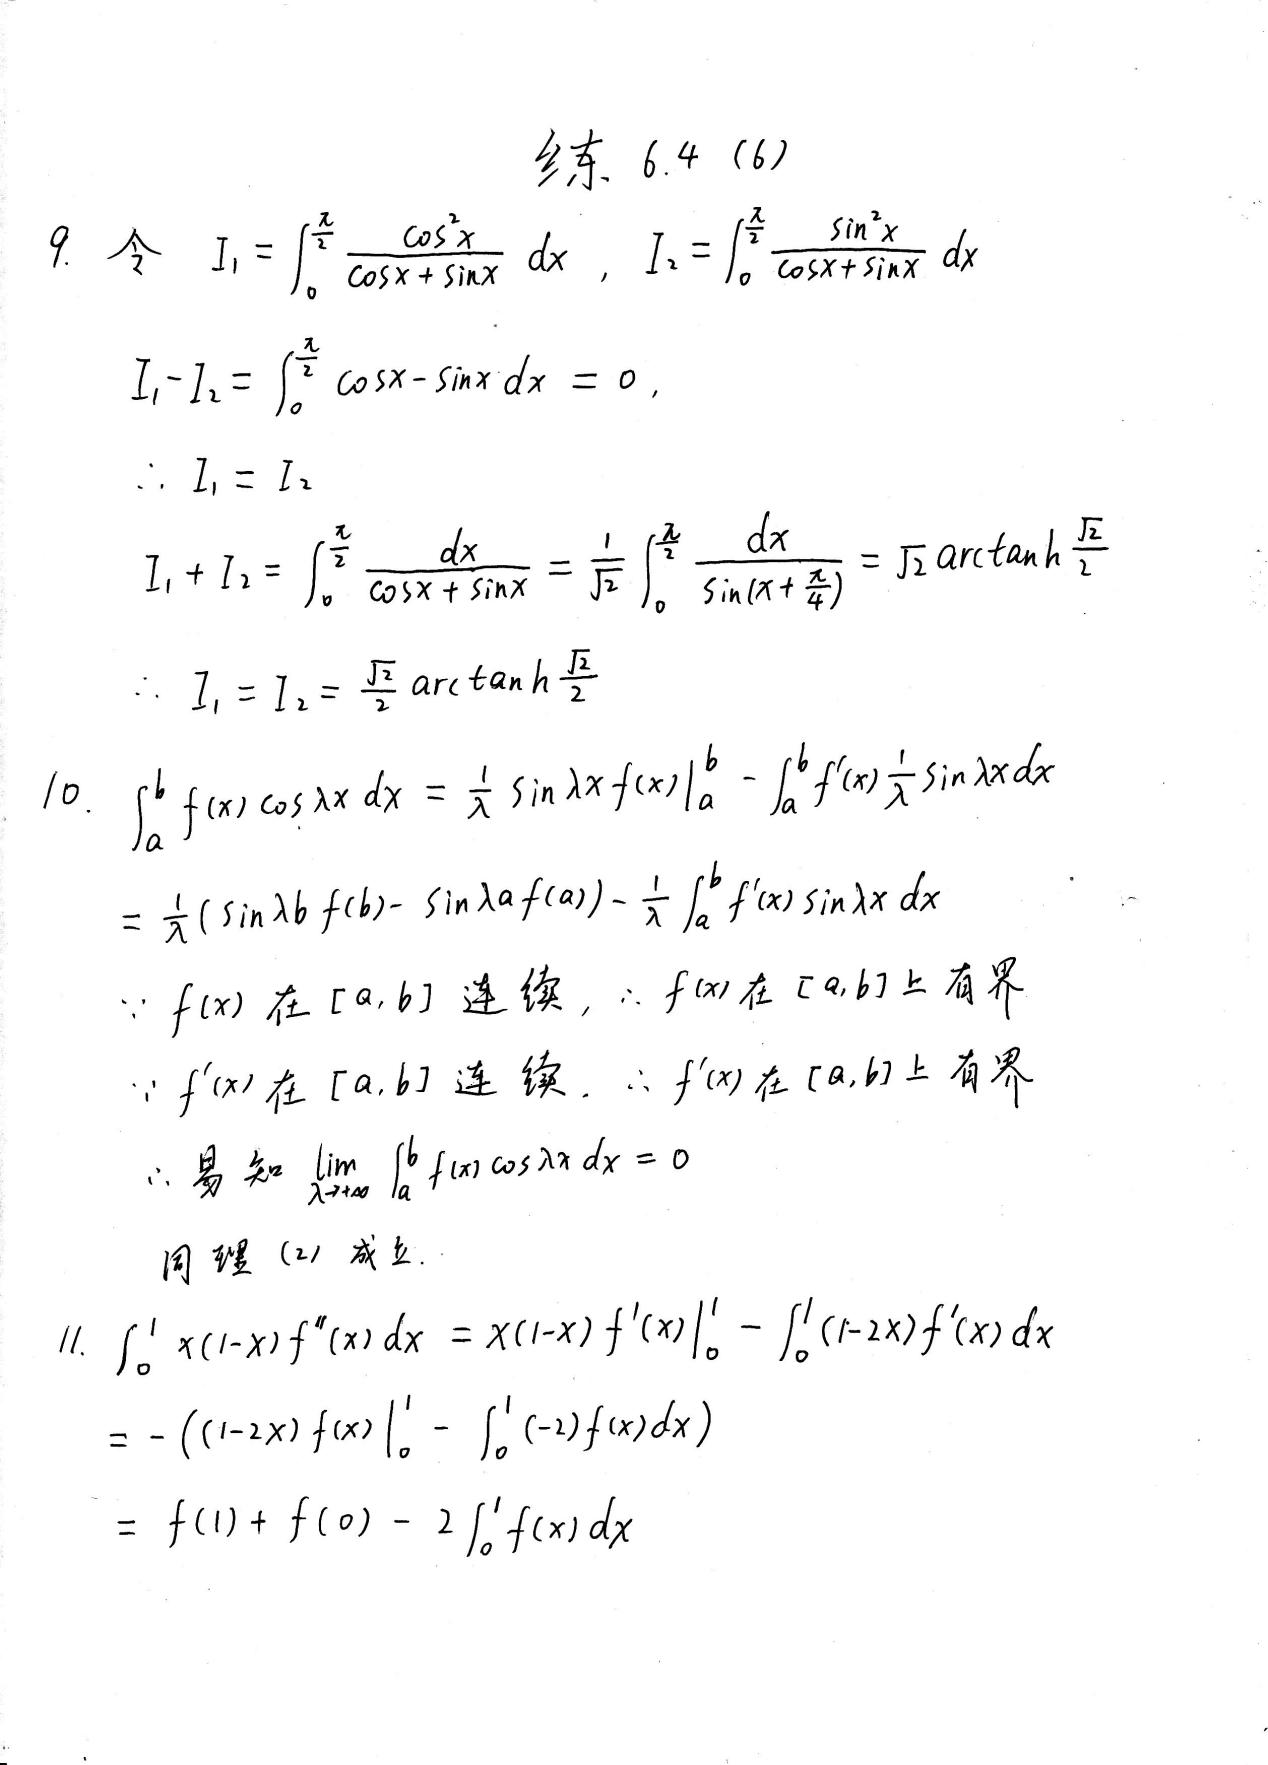 练 6.4 (6)
9. 令 I₁ = ∫₀^{π/2} cos²x/(cosx + sinx) dx , I₂ = ∫₀^{π/2} sin²x/(cosx + sinx) dx
I₁ - I₂ = ∫₀^{π/2} cosx - sinx dx = 0 ,
∴ I₁ = I₂
I₁ + I₂ = ∫₀^{π/2} dx/(cosx + sinx) = 1/√2 ∫₀^{π/2} dx/sin(x + π/4) = √2 arctanh √2/2
∴ I₁ = I₂ = √2/2 arctanh √2/2
10. ∫ₐᵇ f(x) cosλx dx = 1/λ sinλx f(x)|ₐᵇ - ∫ₐᵇ f'(x) 1/λ sinλx dx
= 1/λ (sinλb f(b) - sinλa f(a)) - 1/λ ∫ₐᵇ f'(x) sinλx dx
∵ f(x) 在 [a, b] 连续, ∴ f(x) 在 [a, b] 上有界
∵ f'(x) 在 [a, b] 连续. ∴ f'(x) 在 [a, b] 上有界
∴ 易知 lim_{λ→+∞} ∫ₐᵇ f(x) cosλx dx = 0
同理 (2) 成立.
11. ∫₀¹ x(1-x) f''(x) dx = x(1-x) f'(x)|₀¹ - ∫₀¹ (1-2x) f'(x) dx
= - ((1-2x) f(x)|₀¹ - ∫₀¹ (-2) f(x) dx)
= f(1) + f(0) - 2 ∫₀¹ f(x) dx